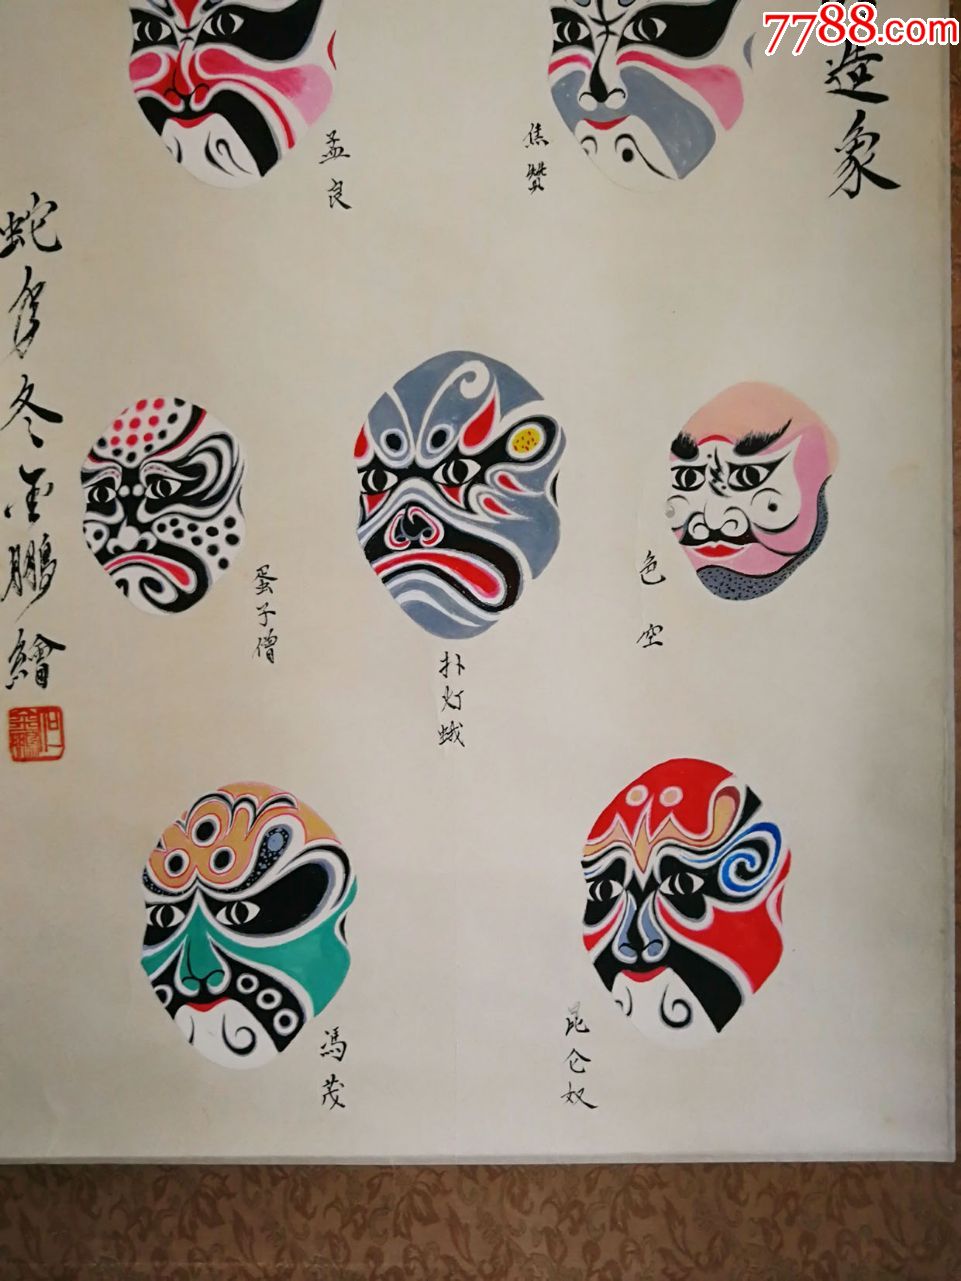 7788.com
造象
焦贊
孟良
色空
扑灯蛾
蛋子僧
昆仑奴
馮茂
蛇年冬金鵬繪